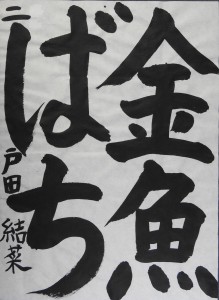 金魚
ばち
二 戸田結菜